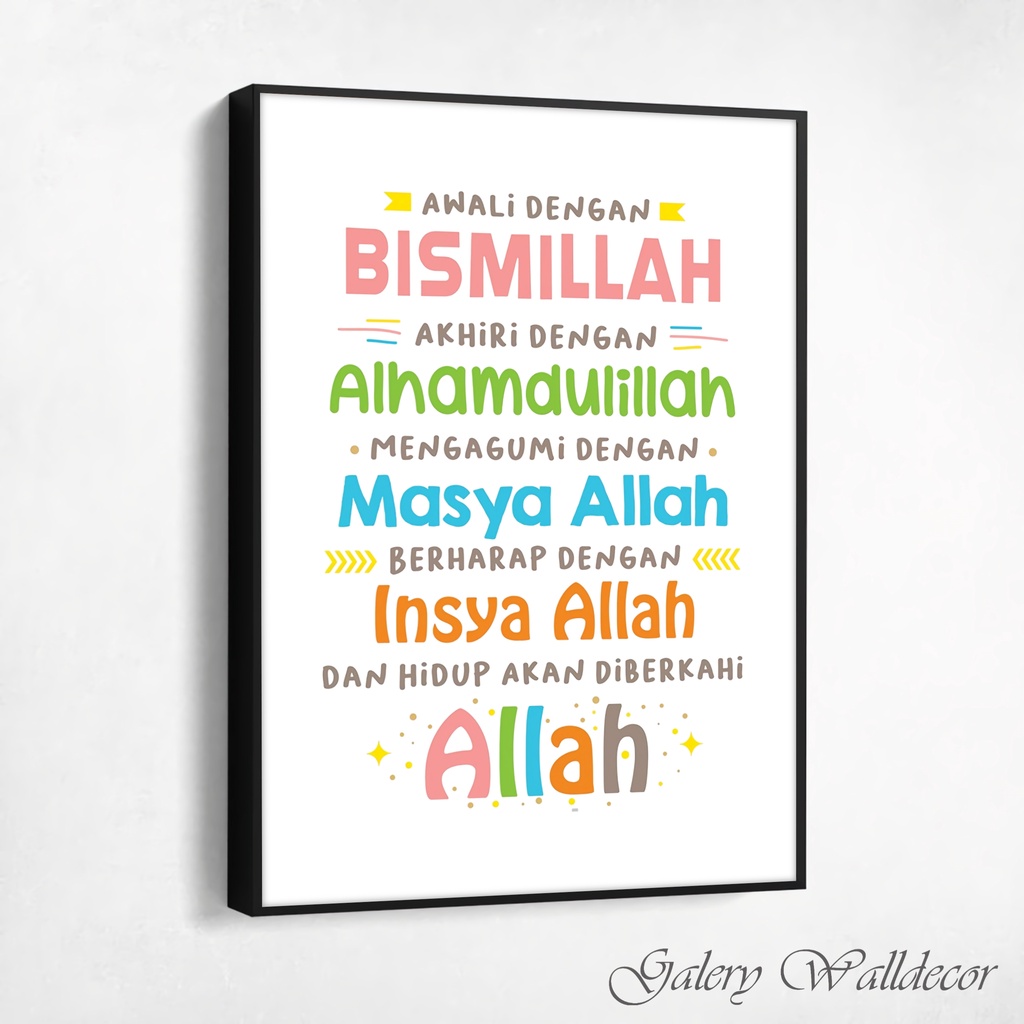 AWALi DENGAN
BISMILLAH
AKHiRi DENGAN
Alhamdulillah
MENGAGUMi DENGAN
Masya Allah
BERHARAP DENGAN
Insya Allah
DAN HiDUP AKAN DiBERKAHi
Allah
Galery Walldecor